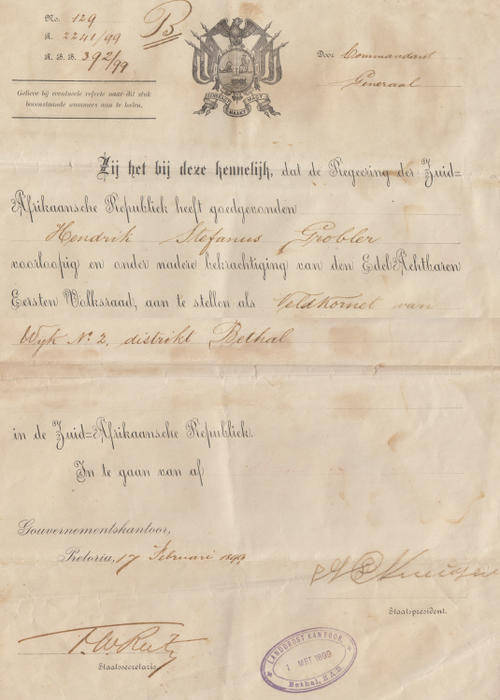 No. 129
R. 2241/99
R. B. B. 392/99
B
Gelieve bij eventueele referte naar dit stuk
bovenstaande nommers aan te halen.
EENDRAGT MAAKT MAGT
Door Commandant
Generaal
Zij het bij deze kennelijk, dat de Regeering der Zuid=
Afrikaansche Republiek heeft goedgevonden
Hendrik Stefanus Grobler
voorloopig en onder nadere bekrachtiging van den EdelAchtbaren
Eersten Volksraad, aan te stellen als Veldkornet van
Wyk No 2, distrikt Bethal
in de Zuid=Afrikaansche Republiek.
In te gaan van af
Gouvernementskantoor,
Pretoria, 17 Februari 1899
Staatspresident.
F W Reitz
Staatssecretaris
LANDDROST KANTOOR
1 MEI 1899
Bethal, Z.A.R.